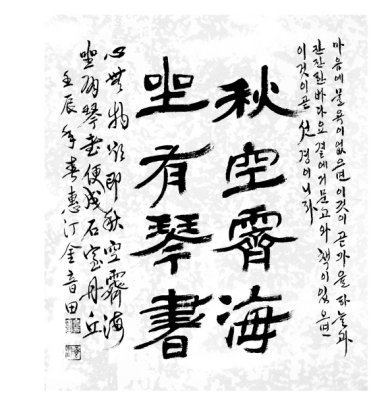 마음에 물욕이 없으면 이것이 곧 가을 하늘과
잔잔한 바다요 곁에 거문고와 책이 있으면
이것이 곧 仙경이니라
秋空霽海
坐有琴書
心無物欲即秋空霽海
坐有琴書便成石室丹丘
壬辰年春惠汀金音田